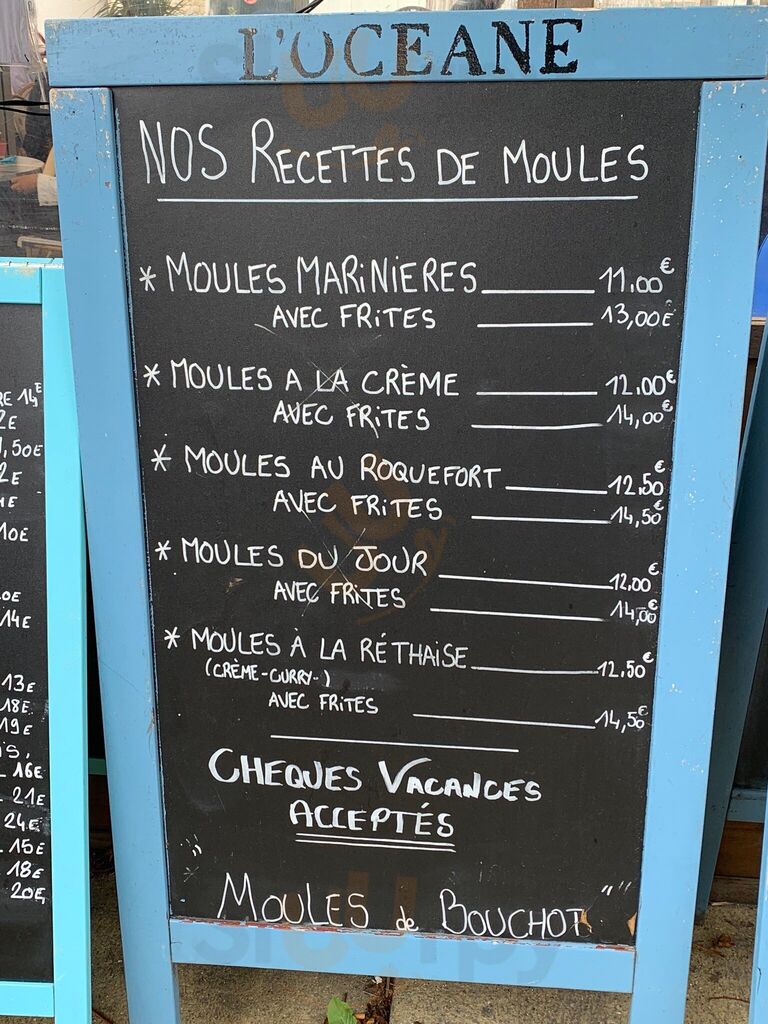 L'OCEANE
NOS RECETTES DE MOULES
* MOULES MARINIERES 11.00€
AVEC FRITES 13,00€
* MOULES A LA CRÈME 12.00€
AVEC FRITES 14,00€
* MOULES AU ROQUEFORT 12.50€
AVEC FRITES 14,50€
* MOULES DU JOUR 12,00€
AVEC FRITES 14,00€
* MOULES À LA RÉTHAISE 12.50€
(CRÈME-CURRY-)
AVEC FRITES 14,50€
CHEQUES VACANCES
ACCEPTÉS
MOULES de BOUCHOT
RE 14€
2€
1,50€
2€
10€
14€
13€
18€
19€
16€
21€
24€
15€
18€
20€